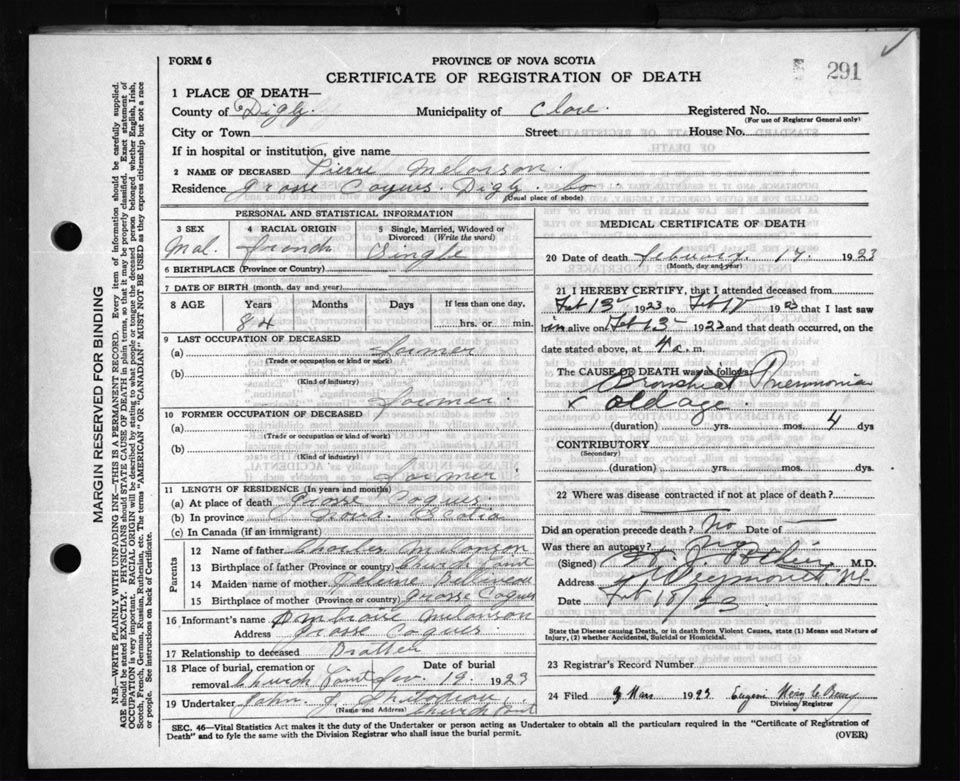 FORM 6
PROVINCE OF NOVA SCOTIA
291
CERTIFICATE OF REGISTRATION OF DEATH
1 PLACE OF DEATH—
County of Digby. Municipality of Clare. Registered No.
(For use of Registrar General only)
City or Town Street House No.
If in hospital or institution, give name
2 NAME OF DECEASED Pierre Melanson.
Residence Grosse Coques. Digby. Co
(Usual place of abode)
PERSONAL AND STATISTICAL INFORMATION
3 SEX 4 RACIAL ORIGIN 5 Single, Married, Widowed or Divorced (Write the word)
Mal. french Single
6 BIRTHPLACE (Province or Country)
7 DATE OF BIRTH (month, day and year)
8 AGE Years Months Days If less than one day,
84 hrs. or min.
9 LAST OCCUPATION OF DECEASED
(a) Farmer
(Trade or occupation or kind of work)
(b)
(Kind of industry)
Farmer.
10 FORMER OCCUPATION OF DECEASED
(a)
(Trade or occupation or kind of work)
(b)
(Kind of industry)
Farmer
11 LENGTH OF RESIDENCE (In years and months)
(a) At place of death Grosse Coques
(b) In province Nova. Scotia
(c) In Canada (if an immigrant)
Parents
12 Name of father Charles Melanson
13 Birthplace of father (Province or country) Church Point
14 Maiden name of mother Belliveau
15 Birthplace of mother (Province or country) Grosse Coques
16 Informant's name Ambroise Melanson
Address Grosse Coques
17 Relationship to deceased Brother
18 Place of burial, cremation or removal Church Point Date of burial 19. 1923
19 Undertaker John J. Thibodeau
(Name and Address) Church Point
MEDICAL CERTIFICATE OF DEATH
20 Date of death february. 17. 1923
(Month, day and year)
21 I HEREBY CERTIFY, that I attended deceased from
Feb 13 1923 to Feb 17 1923 that I last saw
him alive on Feb 13 1923 and that death occurred, on the
date stated above, at 4 a. m.
The CAUSE OF DEATH was as follows:
Bronchial Pneumonia
& old age.
(duration) yrs. mos. 4 dys
CONTRIBUTORY
(Secondary)
(duration) yrs. mos. dys.
22 Where was disease contracted if not at place of death?
Did an operation precede death? No Date of
Was there an autopsy? No
(Signed) Pothier M.D.
Address Weymouth NS
Date Feb 18/23
State the Disease causing Death, or in death from Violent Causes, state (1) Means and Nature of
Injury, (2) whether Accidental, Suicidal or Homicidal.
23 Registrar's Record Number
24 Filed 9 Mars 1923 Eugeni
Division Registrar
SEC. 46—Vital Statistics Act makes it the duty of the Undertaker or person acting as Undertaker to obtain all the particulars required in the "Certificate of Registration of
Death" and to fyle the same with the Division Registrar who shall issue the burial permit.
(OVER)
MARGIN RESERVED FOR BINDING
N.B.—WRITE PLAINLY WITH UNFADING INK—THIS IS A PERMANENT RECORD. Every item of information should be carefully supplied.
AGE should be stated EXACTLY. PHYSICIANS should STATE CAUSE OF DEATH in plain terms, so that it may be properly classified. Exact statement of
OCCUPATION is very important. RACIAL ORIGIN will be described by stating to what people or tongue the deceased person belonged whether English, Irish,
Scotch, French, German, Russian, Ruthenian, etc. The terms "AMERICAN" or "CANADIAN" MUST NOT BE USED as they express citizenship but not a race
or people. See instructions on back of Certificate.